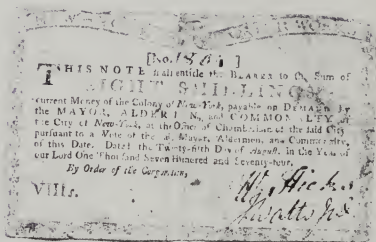 [No. 1801]
THIS NOTE shall entitle the BEARER to the Sum of
EIGHT SHILLINGS
current Money of the Colony of New-York, payable on DEMAND by
the MAYOR, ALDERMEN, and COMMONALTY, of
the City of New-York, at the Office of Chamberlain of the said City
pursuant to a Vote of the said Mayor, Aldermen, and Commonalty,
of this Date. Dated the Twenty-fifth Day of August, in the Year of
our Lord One Thousand Seven Hundred and Seventy-four.
By Order of the Corporation,
W. Hicks
VIIIs.
J Watts Jnr